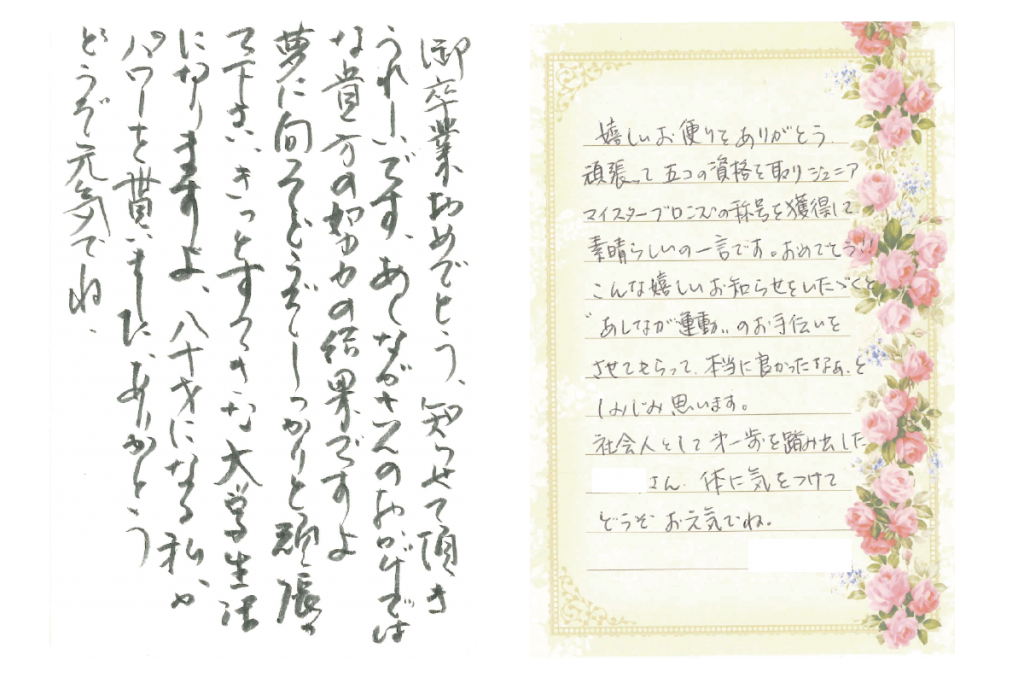 御卒業おめでとう、知らせて頂き
うれしいです、あしながさんのおかげでは
な貴方の努力の結果ですよ
夢に向ってどうぞしっかりと頑張っ
て下さい、きっとすてきな大学生活
になりますよ、八十才になる私、
パワーを貰いました、ありがとう
どうぞ元気でね、
嬉しいお便りをありがとう、
頑張って五コの資格を取りジュニア
マイスターブロンズの称号を獲得して
素晴らしいの一言です。おめでとう!!
こんな嬉しいお知らせをいたゞくと
"あしなが運動"のお手伝いを
させてもらって、本当に良かったなぁ、と
しみじみ思います。
社会人として第一歩を踏み出した
さん、体に気をつけて
どうぞお元気でね。